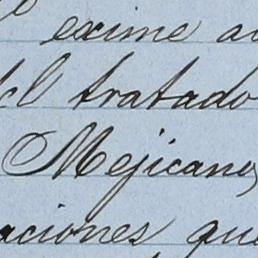 exime au
del tratado
Mejicano,
aciones que